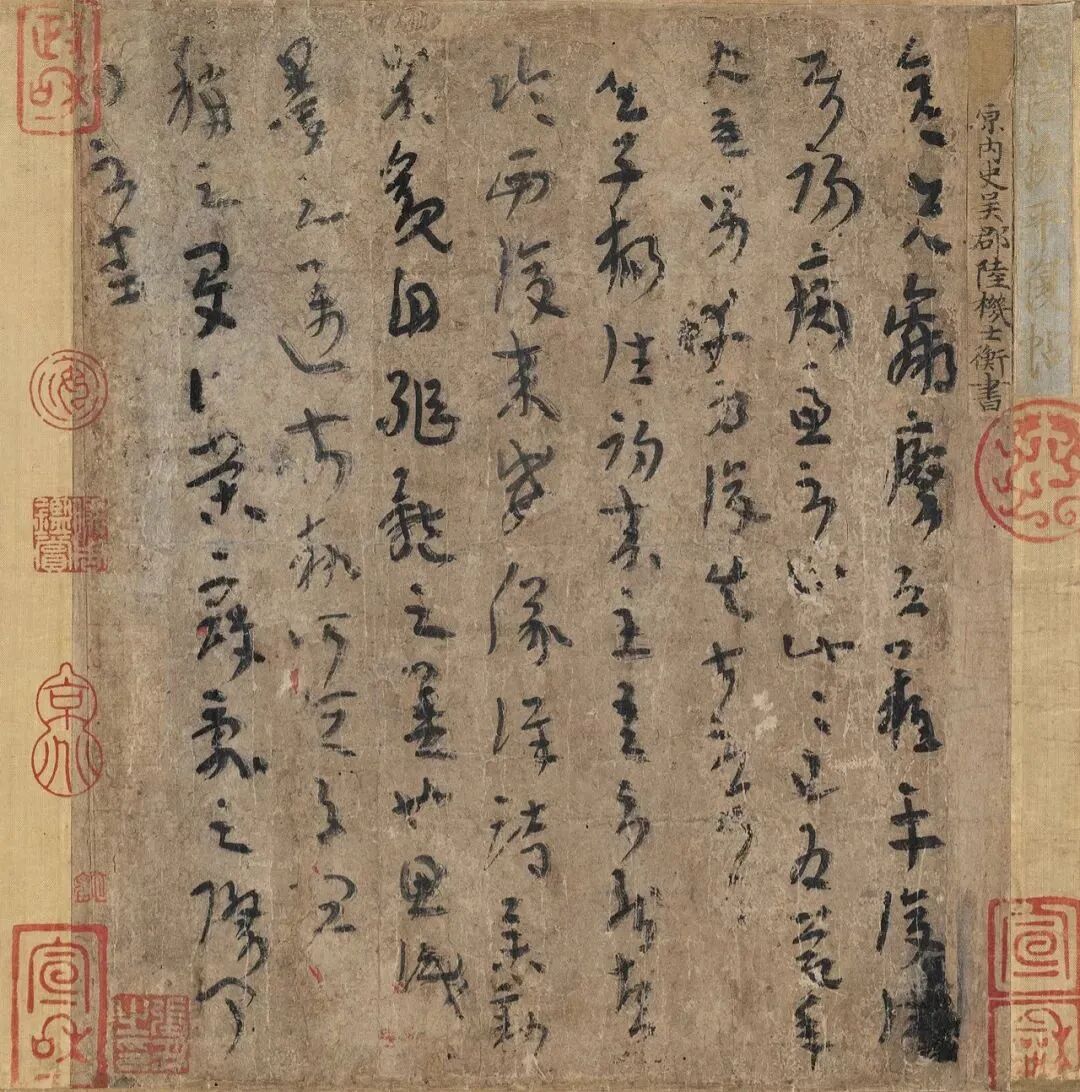 晉陸機平復帖
原內史吳郡陸機士衡書
彥先羸瘵恐難平復往
屬初病慮不止此此已為慶承
使唯男幸為復失前憂耳
吳子楊往初來主吾不能盡
臨西復來威儀詳跱舉動
成觀自軀體之美也思識
量之邁前埶所恒有宜
稱之夏伯榮寇亂之際聞
問不悉
政和
宣和
宣和